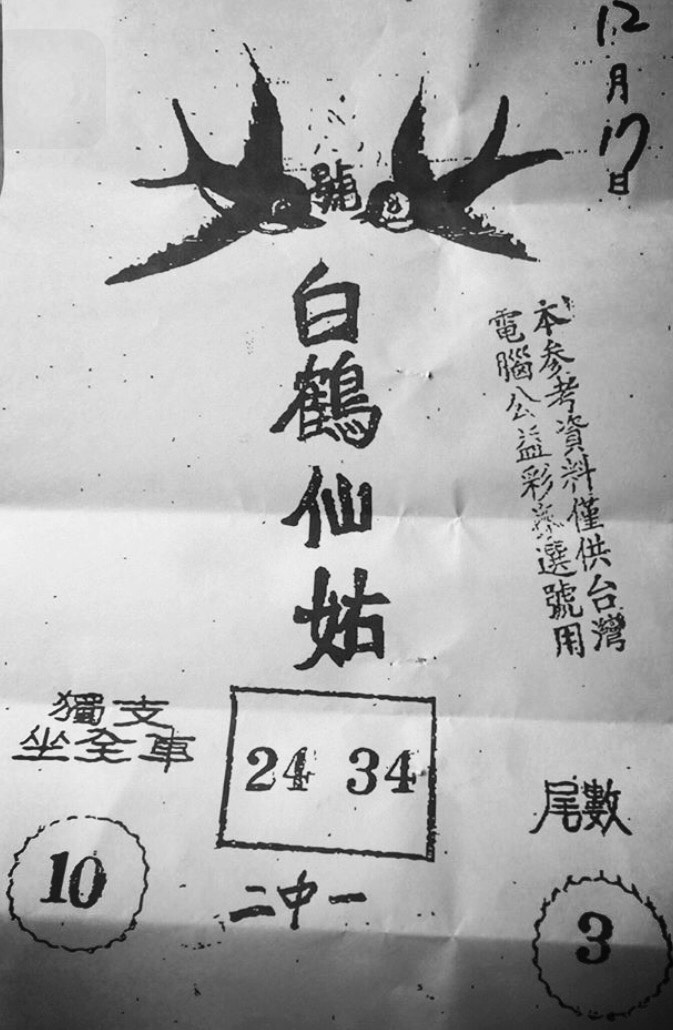 12月17日
號
白鶴仙姑
本參考資料僅供台灣
電腦公益彩券選號用
獨支
坐全車
10
24 34
二中一
尾數
3